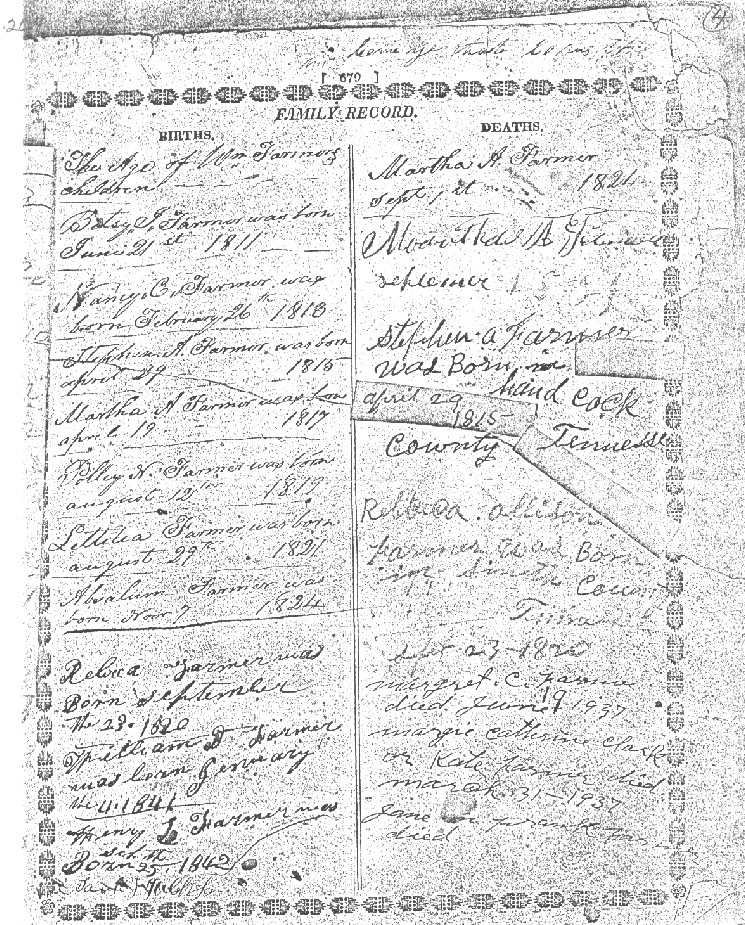 4
[ 670 ]
FAMILY RECORD.
BIRTHS.
The Age of Wm Farmers
children
Betsy J. Farmer was born
June 21st 1811
Nancy C. Farmer was
born February 26th 1813
Stephen A. Farmer was born
april 29 1815
Martha A Farmer was born
april 19 1817
Polley N. Farmer was born
august 12th 1819
Lettitea Farmer was born
august 29th 1821
Absalum Farmer was
born Novr 7 1824
Rebeca Farmer was
Born september
the 23. 1820
William D. Farmer
was born Jenuary
the 4. 1841
Henry L Farmer was
Born 1842
DEATHS.
Martha A. Farmer
Sept 1st 1821
septemer
Stephen a Farmer
was Born in
april 29 hand cock
1815
County Tennesse
Rebecca allison
farmer was Born
in Smith Coun
Tenn
Sept 23-1820
margret. C. Farmer
died June 19 1937
margie catherine Clark
or Kate farmer died
march 31-1937
Jane
died